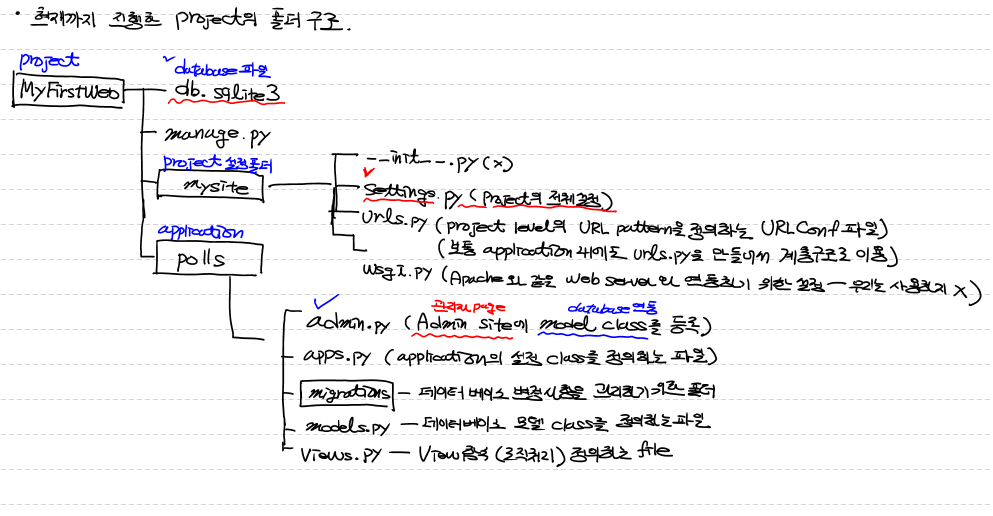 · 현재까지 진행한 project의 폴더 구조.
project
MyFirstWeb
database 파일
db.sqlite3
manage.py
project 설정폴더
mysite
__init__.py (x)
settings.py (project의 전체설정)
urls.py (project level의 URL pattern을 정의하는 URLConf 파일)
(보통 application 내에도 urls.py를 만들어서 계층구조로 이용)
wsgi.py (Apache와 같은 web server와 연동하기 위한 설정 — 우리는 사용하지 x)
application
polls
관리자 page
database 연동
admin.py (Admin site에 model class를 등록)
apps.py (application의 설정 class를 정의하는 파일)
migrations — 데이터베이스 변경사항을 관리하기 위한 폴더
models.py — 데이터베이스 모델 class를 정의하는 파일
views.py — View 함수 (로직처리) 정의하는 file